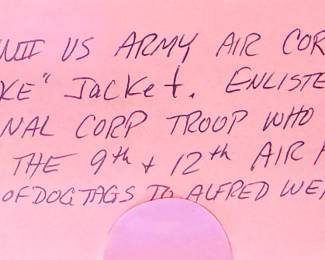 WWII US ARMY AIR COR
KE" JACKET. ENLISTE
NAL CORP TROOP WHO
THE 9th + 12th AIR
OF DOG TAGS TO ALFRED WE